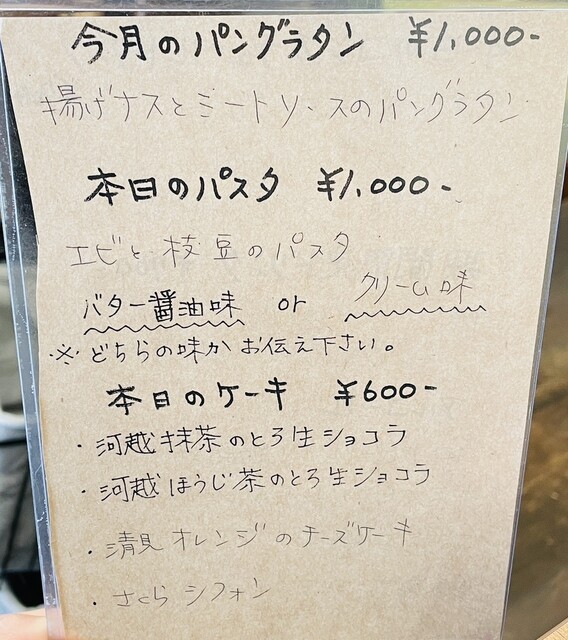 今月のパングラタン ¥1,000-
揚げナスとミートソースのパングラタン
本日のパスタ ¥1,000-
エビと枝豆のパスタ
バター醤油味 or クリーム味
※どちらの味かお伝え下さい。
本日のケーキ ¥600-
・河越抹茶のとろ生ショコラ
・河越ほうじ茶のとろ生ショコラ
・清見オレンジのチーズケーキ
・さくらシフォン